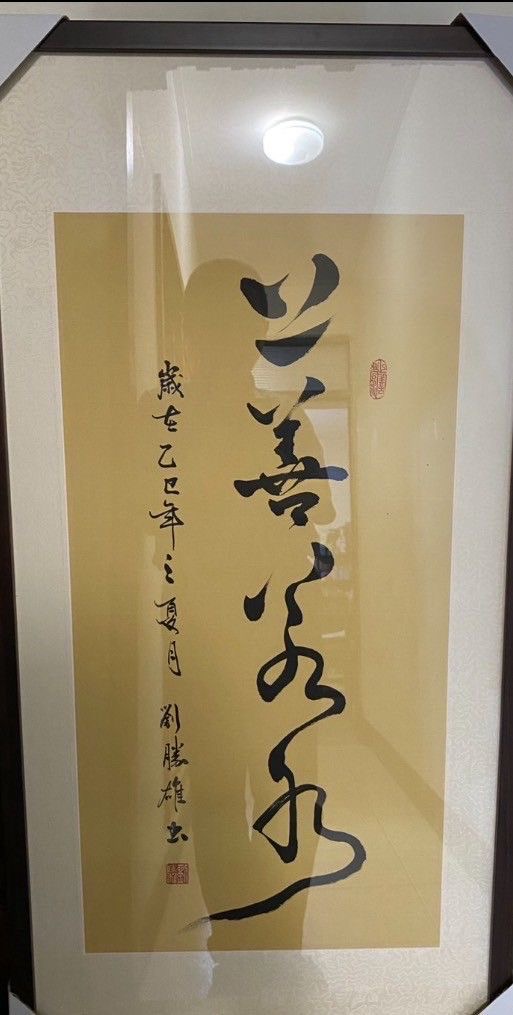 上善若水
歲在乙巳年之夏月 劉勝雄書